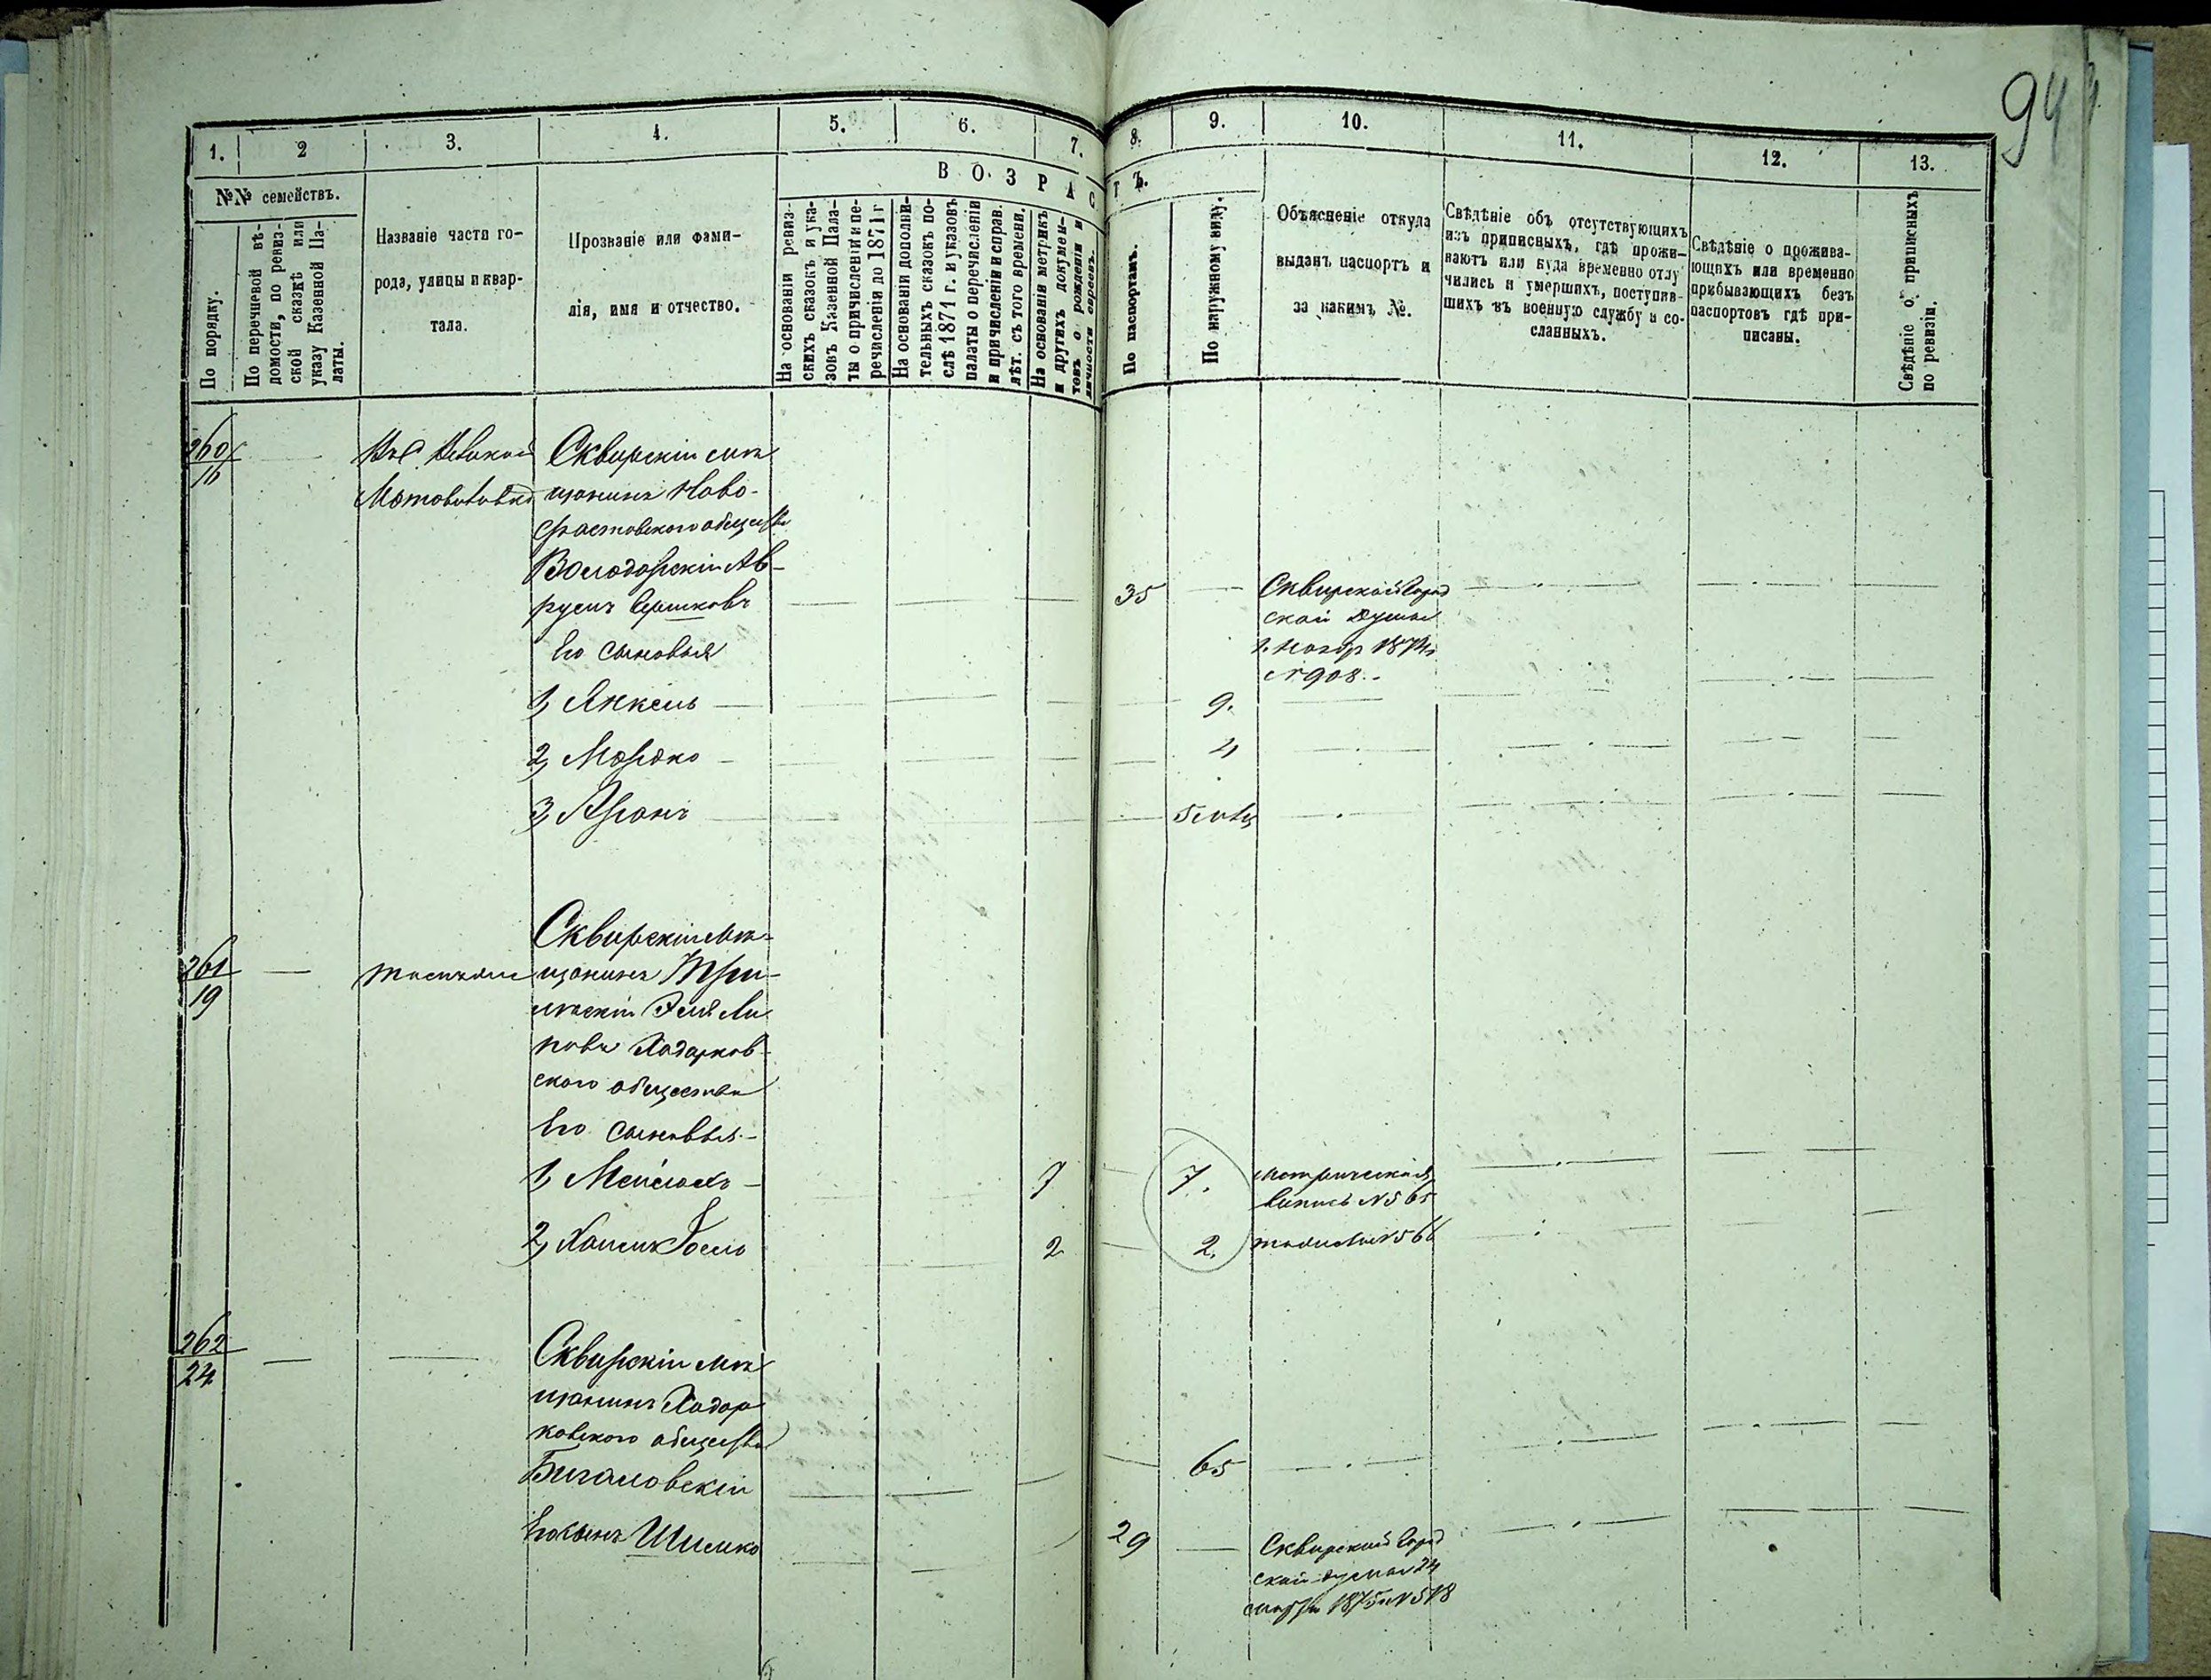 94
1.
2
3.
4.
5.
6.
7.
8.
9.
10.
11.
12.
13.
№№ семействъ.
В О З Р А С Т Ъ.
По порядку.
По перечневой вѣ-
домости, по ревиз-
ской сказкѣ или
указу Казенной Па-
латы.
Названіе части го-
рода, улицы и квар-
тала.
Прозваніе или фами-
лія, имя и отчество.
На основаніи ревиз-
скихъ сказокъ и ука-
зовъ Казенной Пала-
ты о причисленіи и пе-
речисленіи до 1871 г
На основаніи дополни-
тельныхъ сказокъ по-
слѣ 1871 г. и указовъ
палаты о перечисленіи
и причисленіи и справ.
лѣт. съ того времени.
На основаніи метрикъ
и другихъ докумен-
товъ о рожденіи и
личности евреевъ.
По паспортамъ.
По наружному виду.
Объясненіе откуда
выданъ паспортъ и
за какимъ №.
Свѣдѣніе объ отсутствующихъ
изъ приписныхъ, гдѣ прожи-
ваютъ или куда временно отлу
чились и умершихъ, поступив-
шихъ въ военную службу и со-
сланныхъ.
Свѣдѣніе о прожива-
ющихъ или временно
прибывающихъ безъ
паспортовъ гдѣ при-
писаны.
Свѣдѣніе о приписныхъ
по ревизіи.
260
Сквирскій мѣ
Мотовиловка щанинъ Ново-
фастовского общества
Володарскій Ав-
румъ Гершковъ
35
Сквирской Город
ской Думы
№ 908.
Его сыновья
1, Янкель
9.
2, Мордко
4
3, Аронъ
5 мѣц
261
19
Сквирскій мѣ-
щанинъ
Ходорков-
ского общества
Его сыновья
1, Мейлехъ
7
7.
метрическая
выпись № 565
2, Хаимъ Іось
2
2.
№ 566
262
24
Сквирскій мѣ
щанинъ Ходор
ковского общества
Бигаловскій
65
Его сынъ Шимко
29
Сквирской Город
ской думы 24
марта 1875 г № 518